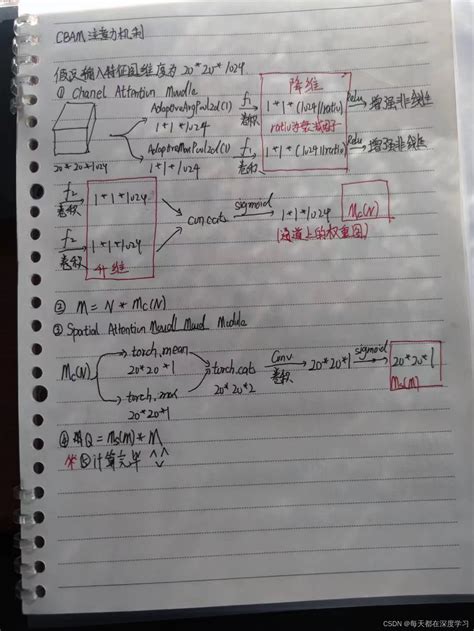 CBAM注意力机制
假设输入特征图维度为 20*20*1024
① Chanel Attention Muodle
降维
AdaptiveAvgPool2d(1) f1 1*1*(1024//ratio) Relu 增强非线性
1*1*1024 卷积 ratio为缩减因子
AdaptiveMaxPool2d(1) f1 1*1*(1024//ratio) Relu 增强非线性
20*20*1024 1*1*1024 卷积
f2 1*1*1024
卷积
concats sigmoid 1*1*1024 Mc(N)
(通道上的权重图)
f2 1*1*1024
卷积 升维
② M = N * Mc(N)
③ Spatial Attention Mudule
torch.mean
Mc(N) 20*20*1 torch.cats Conv 20*20*1 sigmoid 20*20*1
20*20*2 卷积 Ms(M)
torch.max
20*20*1
④ Q = Ms(M) * M
⑤计算完毕 ^^
CSDN @每天都在深度学习